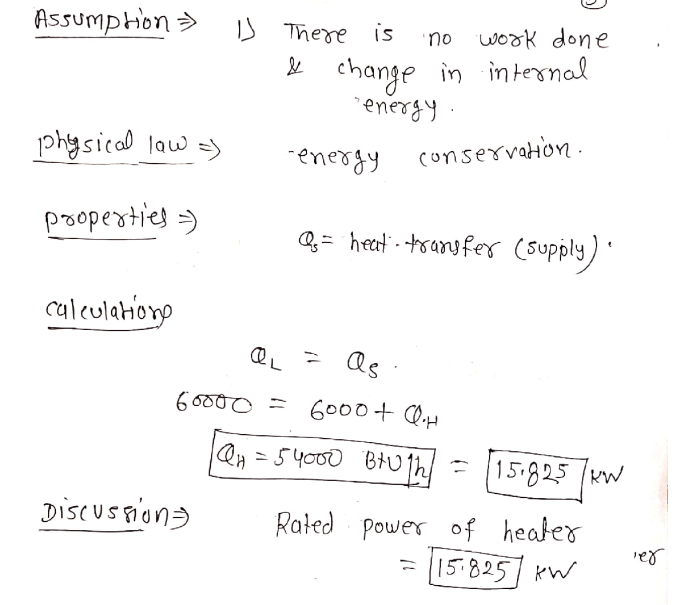 Assumption ⇒ 1) There is no work done
& change in internal
energy.
physical law ⇒ -energy conservation.
properties ⇒
Qs = heat-transfer (supply).
calculations
QL = Qs.
60000 = 6000 + Q.H
QH = 54000 BtU/h = 15.825 KW
Discussion ⇒ Rated power of heater
= 15.825 KW
'er